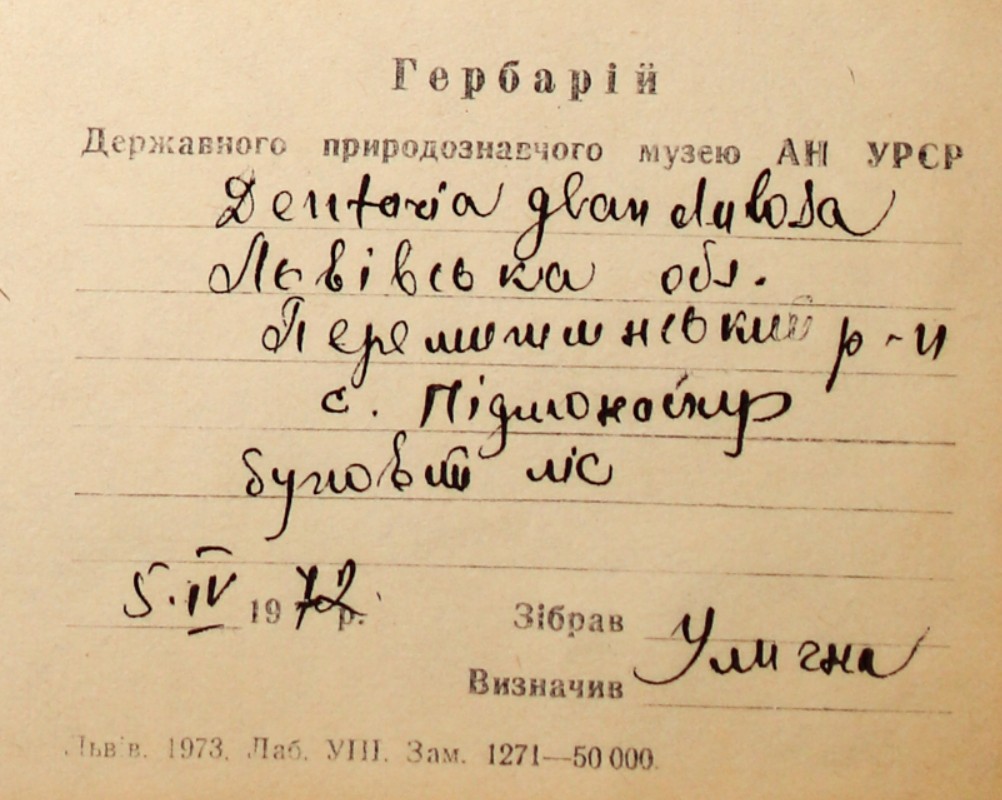 Гербарій
Державного природознавчого музею АН УРСР
Dentaria glandulosa
Львівська обл.
Перемишлянський р-н
с.
буковий ліс
5.IV 1972 р. Зібрав
Визначив Улична
Львів. 1973. Лаб. УПІ. Зам. 1271—50 000.